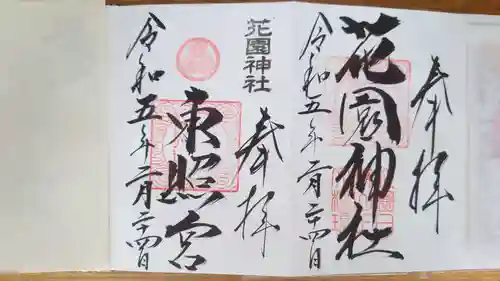 奉拝
花園神社
令和五年二月二十四日
花園神社
奉拝
東照宮
令和五年二月二十四日